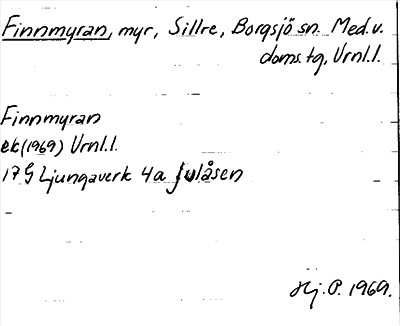 Finnmyran, myr, Sillre, Borgsjö sn. Med.v.
doms.tg, Vrnl.l.
Finnmyran
ek(1969) Vrnl.l.
17 G Ljungaverk 4a Julåsen
Hj. P. 1969.